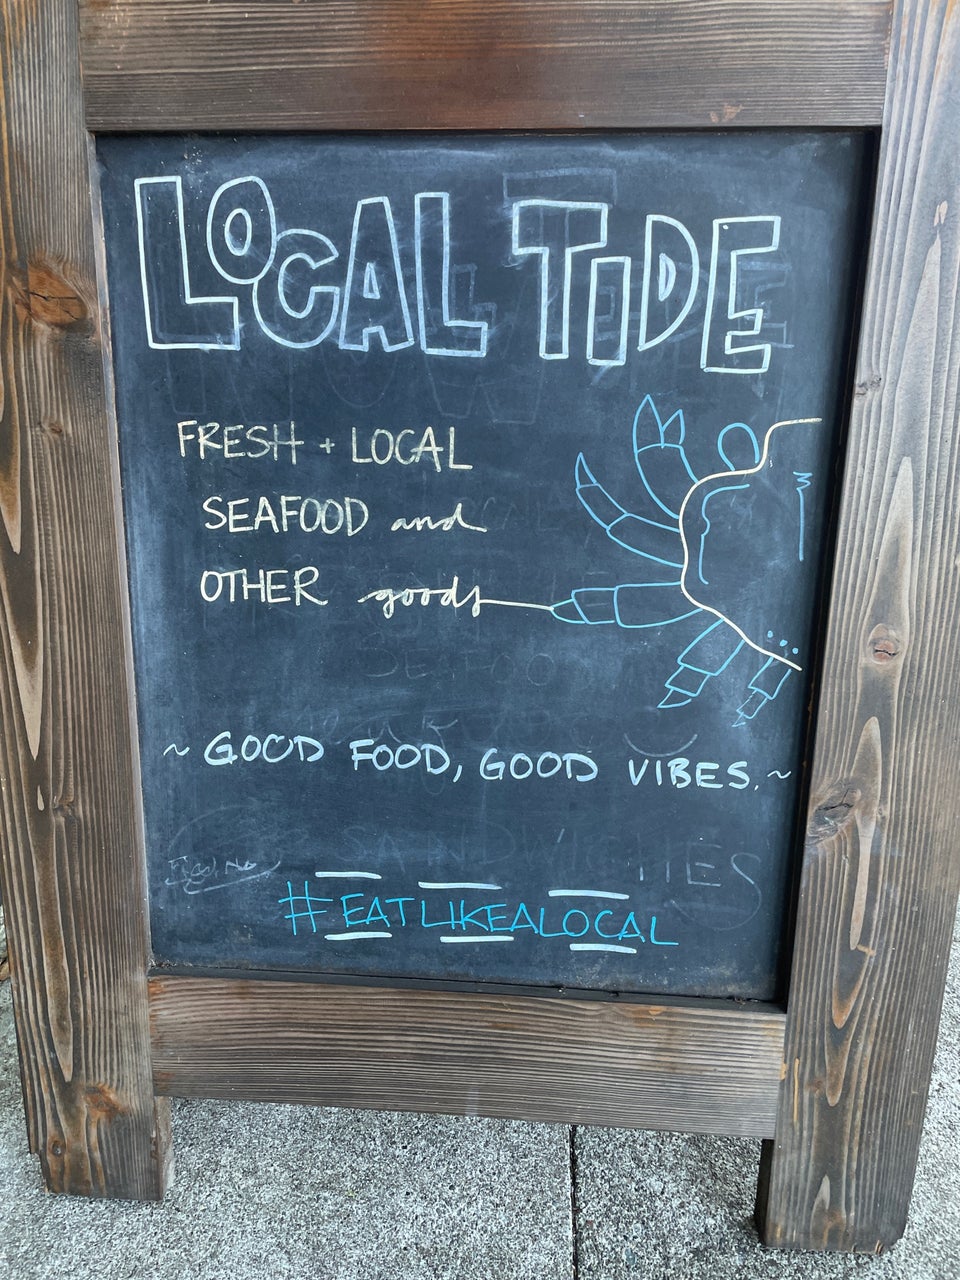 LOCAL TIDE
FRESH + LOCAL
SEAFOOD and
OTHER goods
~ GOOD FOOD, GOOD VIBES. ~
SANDWICHES
#EATLIKEALOCAL